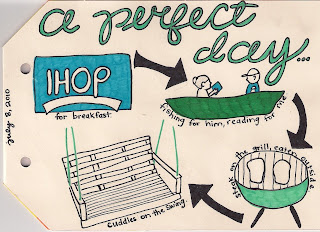 a perfect
day...
IHOP
for breakfast
fishing for him, reading for me
steak on the grill, eaten outside
cuddles on the swing.
july 8, 2010